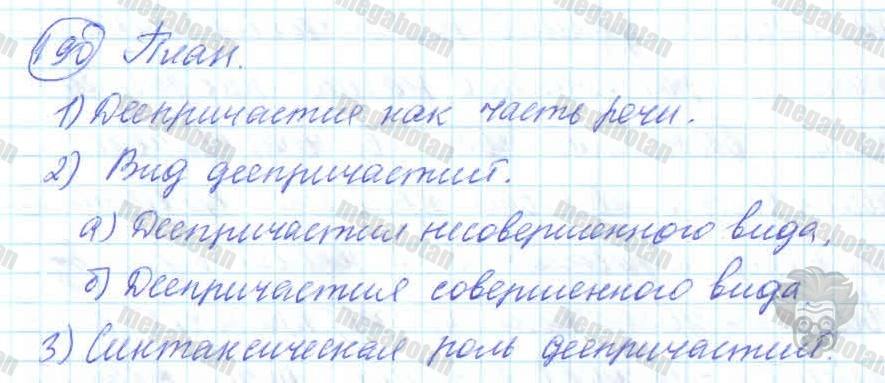 190 План.
1) Деепричастие как часть речи.
2) Вид деепричастий.
а) Деепричастия несовершенного вида,
б) Деепричастия совершенного вида
3) Синтаксическая роль деепричастий.
megabotan